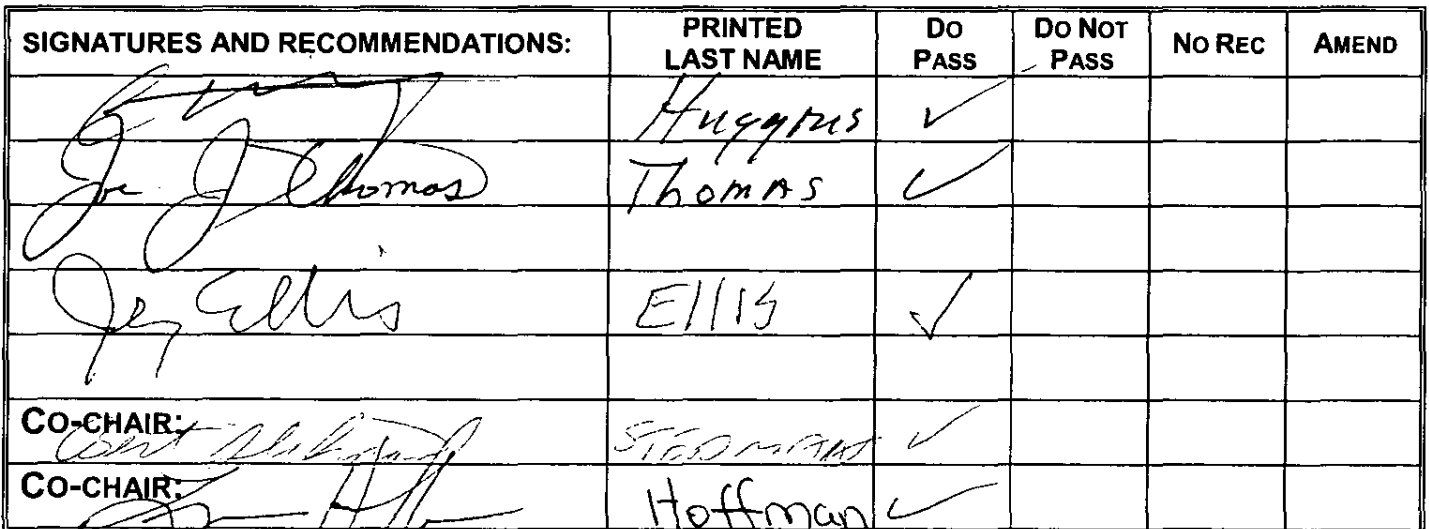 SIGNATURES AND RECOMMENDATIONS: PRINTED LAST NAME DO PASS DO NOT PASS NO REC AMEND
Huggins ✓
Joe J Thomas Thomas ✓
Ellis Ellis ✓
CO-CHAIR: Stedman ✓
CO-CHAIR: Hoffman ✓